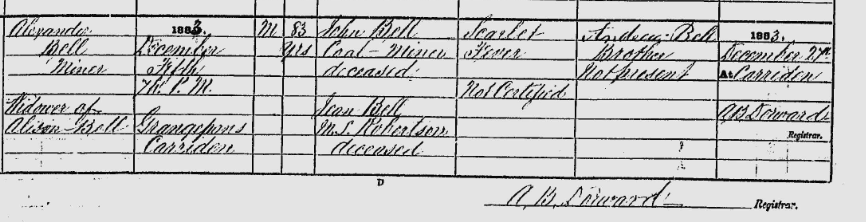 Alexander 1883 M 83 John Bell Scarlet Andrew Bell 1883.
Bell December Yrs Coal-Miner Fever Brother December 27th
Miner Fifth deceased Not present At Carriden
7h P.M. Not Certified
Widower of Jean Bell A B Dorward
Alison Bell Grangepans M.S. Robertson Registrar.
Carriden deceased
D
A. B. Dorward Registrar.